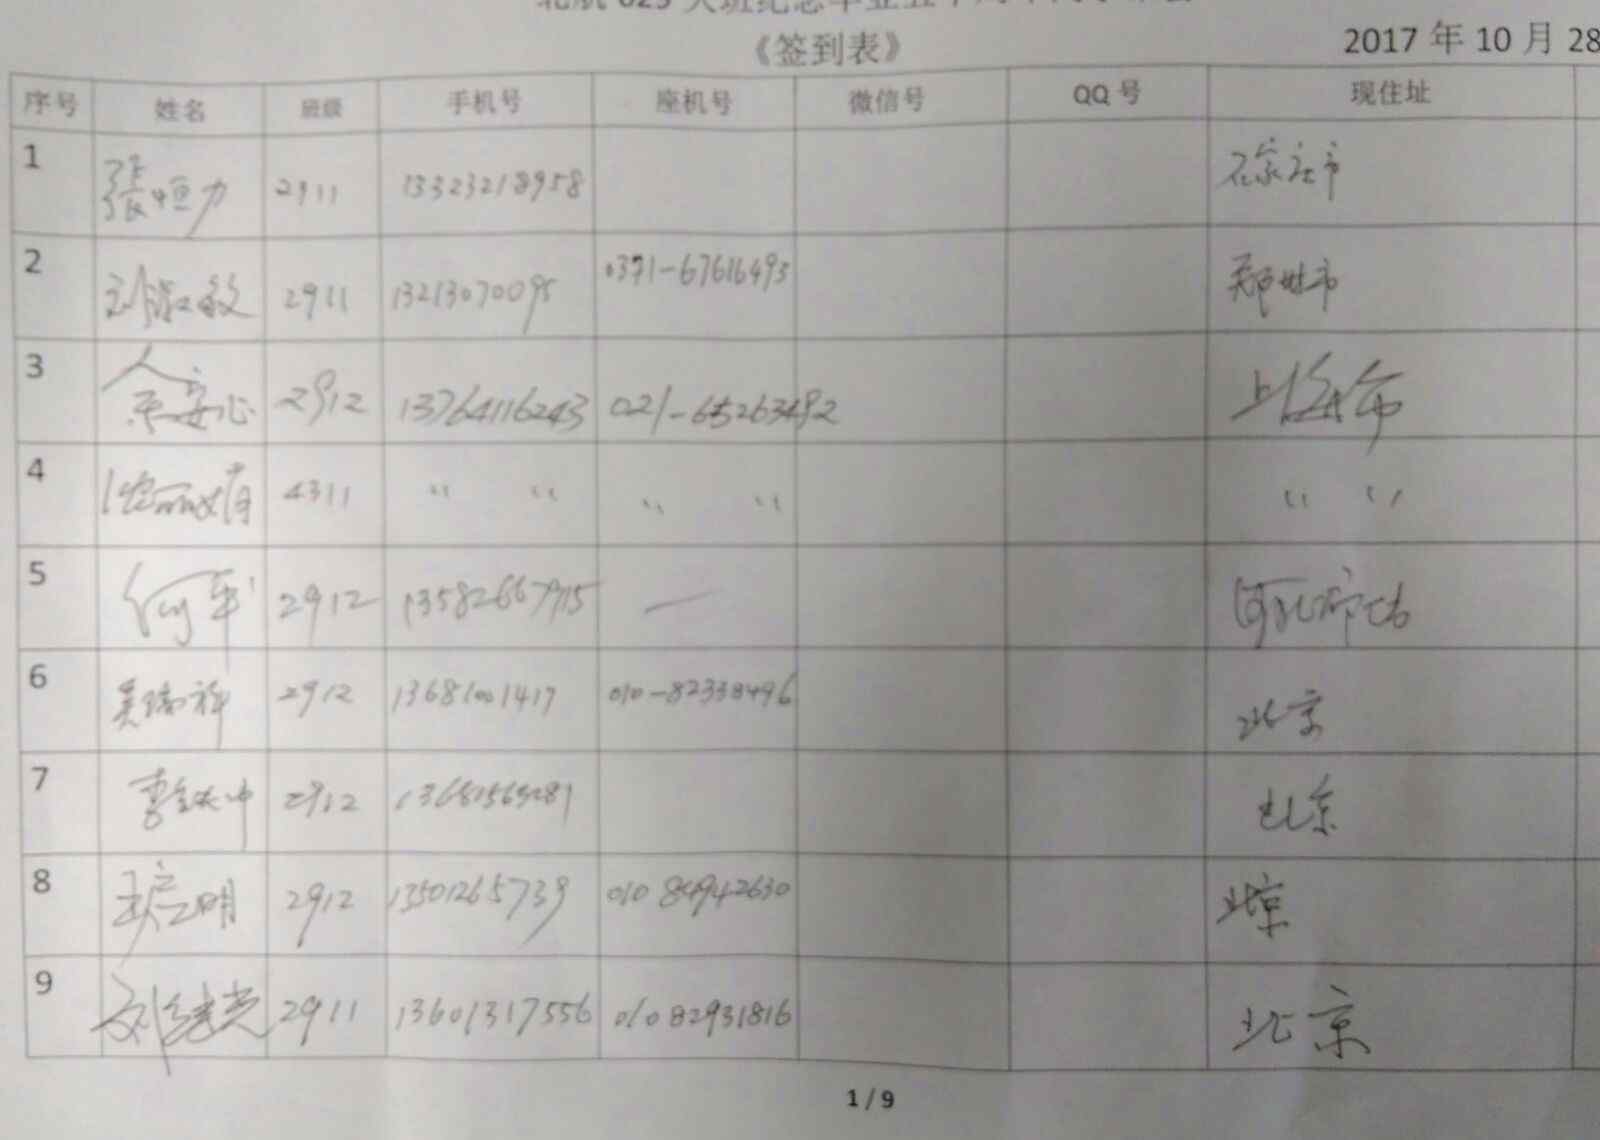 《签到表》
2017 年 10 月 28
序号 姓名 班级 手机号 座机号 微信号 QQ 号 现住址
1 张恒力 2911 13323218958 石家庄市
2 刘淑敏 2911 13213070095 0371-67616493 郑州市
3 余安心 2912 13764116243 021-65263492 上海市
4 4311 〃 〃 〃 〃 〃 〃
5 何军 2912 13582667715 — 河北廊坊
6 吴瑞祥 2912 13681001417 010-82338496 北京
7 2912 13681565281 北京
8 2912 13501265739 010 84942630 北京
9 刘继光 2911 13601317556 010 82931816 北京
1 / 9